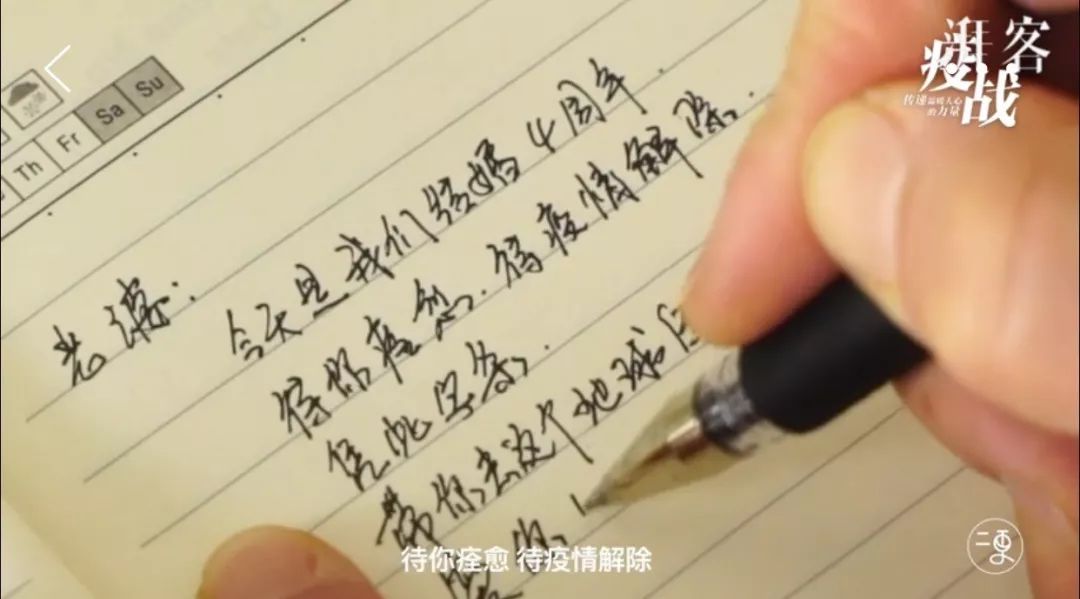 客
疫战
传递温暖人心
的力量
Th Fr Sa Su
老婆:
今天是我们结婚4周年.
待你痊愈.待疫情解除.
凭此字条.
带你去这个地球
你
待你痊愈 待疫情解除
二更